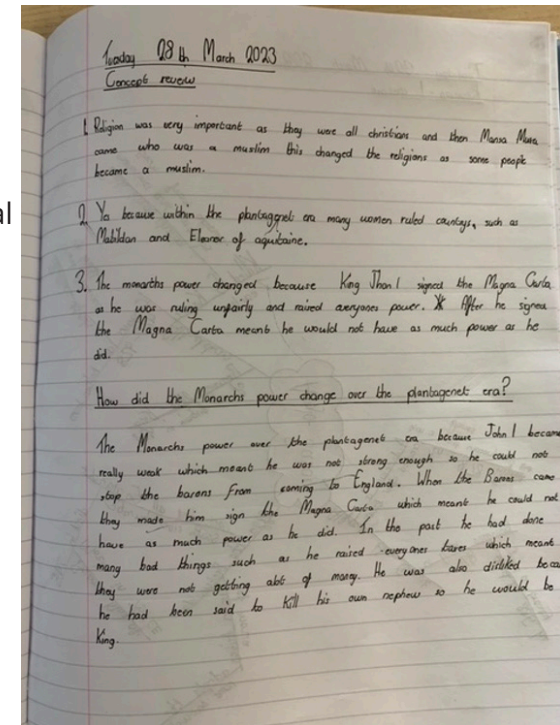 al
Tuesday 28th March 2023
Concept review
1. Religion was very important as they were all christians and then Mansa Musa
came who was a muslim this changed the religions as some people
became a muslim.
2. Ya because within the plantagenet era many women ruled countys, such as
Matildan and Eleanor of aquitaine.
3. The monarths power changed because King Jhon I signed the Magna Carta
as he was ruling unfairly and raised averyones power. After he signed
the Magna Carta meant he would not have as much power as he
did.
How did the Monarchs power change over the plantagenet era?
The Monarchs power over the plantagenet era because John I became
really weak which meant he was not strong enough so he could not
stop the barons from coming to England. When the Barons came
they made him sign the Magna Carta which meant he could not
have as much power as he did. In the past he had done
many bad things such as he raised everyones taxes which meant
they were not getting alot of money. He was also disliked beca
he had been said to kill his own nephew so he would be
King.